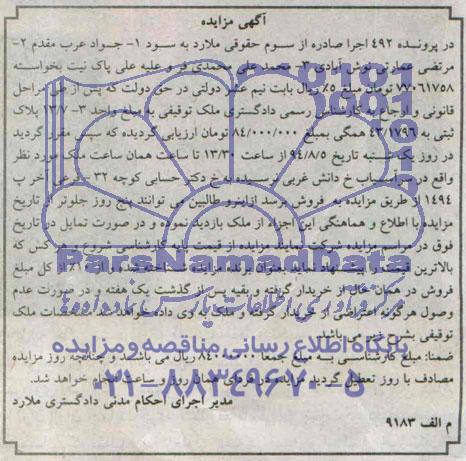 آگهی مزایده
در پرونده ۴۹۲ اجرا صادره از سوم حقوقی ملارد به سود ۱- جواد عرب مقدم ۲-
مرتضی عمارتی نوش آبادی ۳- محمد علی محمدی فر و علیه علی پاک نیت بخواسته
۷۷۰۶۱۷۵۸ تومان مبلغ ۵٪ ریال بابت نیم عشر دولتی در حق دولت که پس از طی مراحل
قانونی و ارجاع به کارشناس رسمی دادگستری ملک توقیفی به مبلغ واحد ۳- ۱۳/۷ پلاک
ثبتی به ۴۳/۱۷۹۶ همگی بمبلغ ۸۴/۰۰۰/۰۰۰ تومان ارزیابی گردیده که سپس مقرر گردید
در روز یک شنبه تاریخ ۹۴/۸/۵ از ساعت ۱۳/۳۰ تا ساعت همان ساعت ملک مورد نظر
واقع در سرآسیاب خ دانش غربی نرسیده به خ دکتر حسابی کوچه ۳۲- فرعی آخر پ
۱۴۹۴ از طریق مزایده به فروش برسد ازاینرو طالبین می توانند پنج روز جلوتر از تاریخ
مزایده با اطلاع و هماهنگی این اجراء از ملک بازدید نموده و در صورت تمایل در تاریخ
فوق در مراسم مزایده شرکت نمایند مزایده از قیمت پایه کارشناسی شروع و هر کس که
بالاترین قیمت را پیشنهاد نماید بعنوان برنده مزایده شناخته شده و از ۱۰٪ از کل مبلغ
فروش در همان حال از خریدار گرفته و بقیه پس از گذشت یک هفته و در صورت عدم
وصول هرگونه اعتراضی از خریدار گرفته و ملک به وی داده خواهد شد مشخصات ملک
توقیفی بشرح می باشد.
ضمنا: مبلغ کارشناسی به مبلغ جمعا ریال می باشد و چنانچه روز مزایده
مصادف با روز تعطیل گردید مزایده در فردای همان روز و ساعت انجام خواهد شد.
مدیر اجرای احکام مدنی دادگستری ملارد
م الف ۹۱۸۳
ParsNamadData
مرکز فرآوری اطلاعات پارس نماد داده ها
پایگاه اطلاع رسانی مناقصه و مزایده
۰۲۱-۸۸۳۴۹۶۷۰-۵